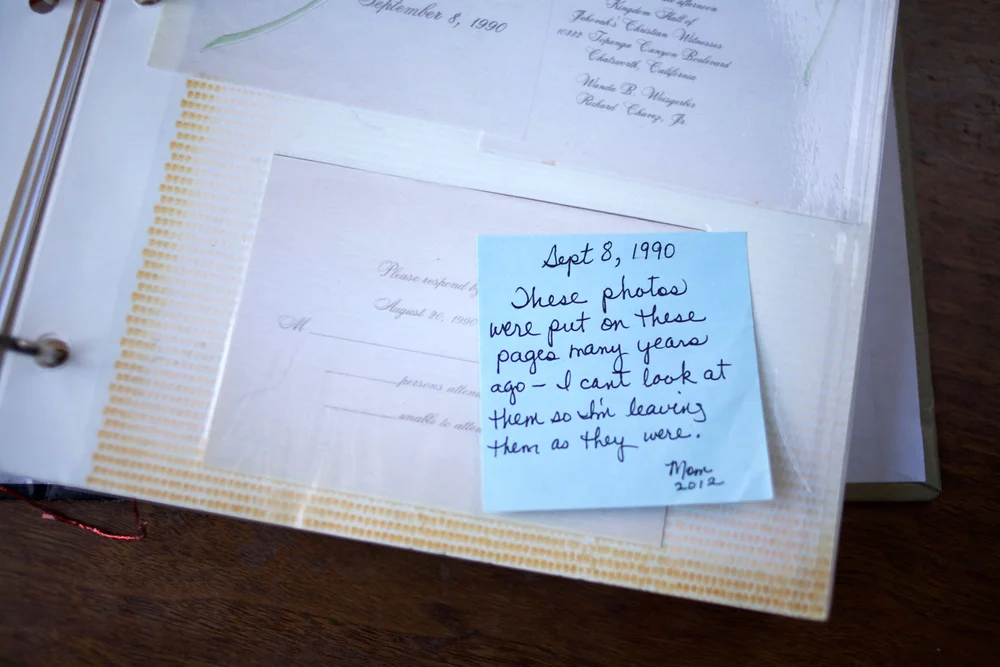 September 8, 1990
afternoon
Kingdom Hall of
Jehovah's Christian Witnesses
10222 Topanga Canyon Boulevard
Chatsworth, California
Wanda B. Weisgerber
Richard Chavez, Jr.
Please respond by
August 20, 1990
M
persons atten
unable to atten
Sept 8, 1990
These photos
were put on these
pages many years
ago – I can't look at
them so I'm leaving
them as they were.
Mom
2012